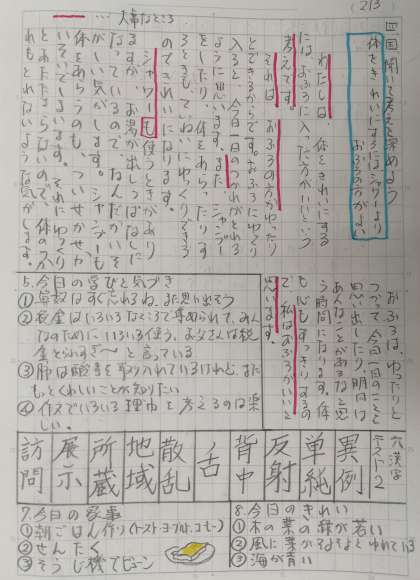 (213)
大事なところ
四国開て考えを深めよう
体をきれいにするにはシャワーより
おふろの方がよい
わたしは、体をきれいにする
には、おふろに入った方がいいという
考えです。
それは、おふろの方がゆったり
とできるからです。おふろにゆっくり
入ると、今日一日のつかれがとれる
ように思います。また、シャンプー
をしたり、体をあらったりす
るときも、ていねいにゆっくりできる
のできれいになります。
シャワーも使うときがあり
ますが、お湯が出しっぱなしに
なっているので、なんだかいそ
がしい気がします。シャンプーも
体をあらうのも、ついせかせか
といそいでしまいます。それにゆっくり
とあたたまらないので、体のつか
れもとれないような気がします。
おふろは、ゆったりと
つかって、今日一日のことを
思い出したり、明日は
あんなことがあるなと思
う時間になります。体
も心もすっきりするの
で、私はおふろがいいと
思います。
5.今日の学びと気づき
①毎教はすぐ忘れるね。また思い出そう
②税金はいろいろなところで集められて、みん
なのためにいろいろ使う。お父さんは税
金とられすぎ〜と言っている
③肺は酸素を取り入れているけれど、また
もっとくわしいことが知りたい
④作文でいろいろ理由を考えるのは楽
しい。
穴漢字
テスト2
異例
単純
反射
背中
舌
散乱
地域
所蔵
展示
訪問
7.今日の家事
①朝ごはん作り(トースト・ヨーグルト、コーヒー)
②せんたく
③そうじ機でビューン
8.今日のきれい
①木の葉の緑が若い
②風に葉がそよそよとゆれている
③海が青い